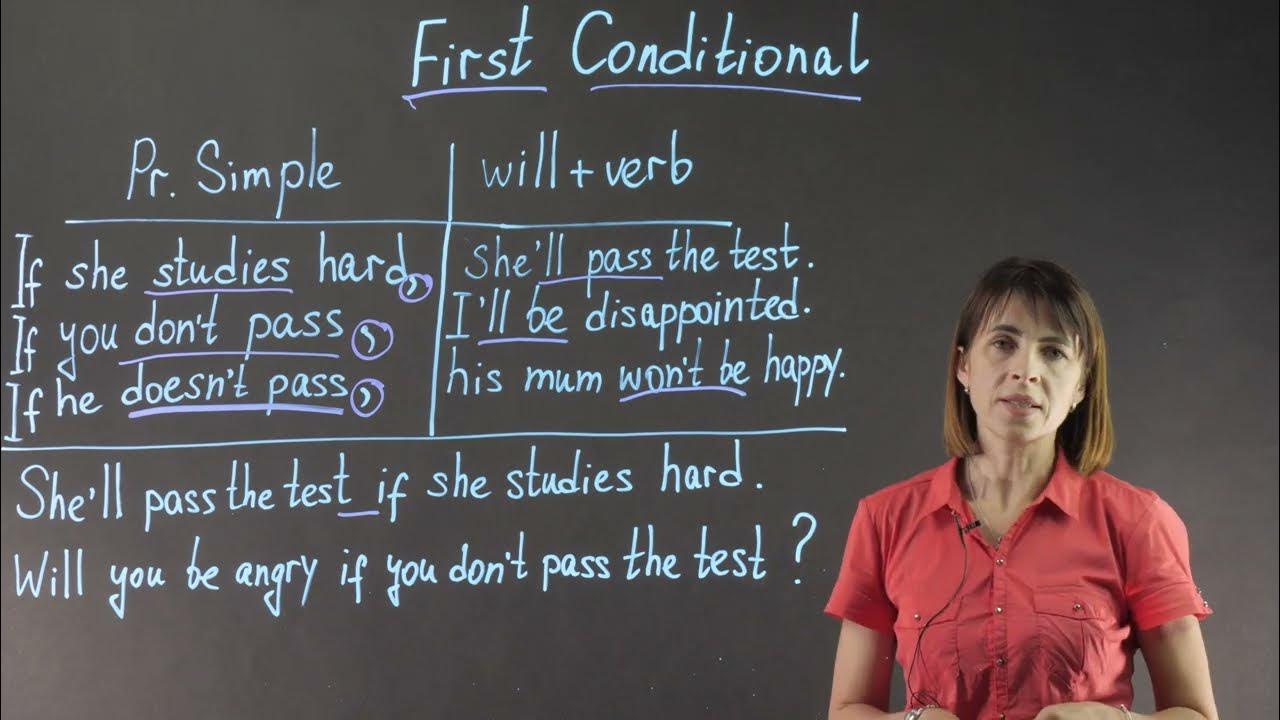 First Conditional
Pr. Simple will + verb
If she studies hard, She'll pass the test.
If you don't pass, I'll be disappointed.
If he doesn't pass, his mum won't be happy.
She'll pass the test if she studies hard.
Will you be angry if you don't pass the test?